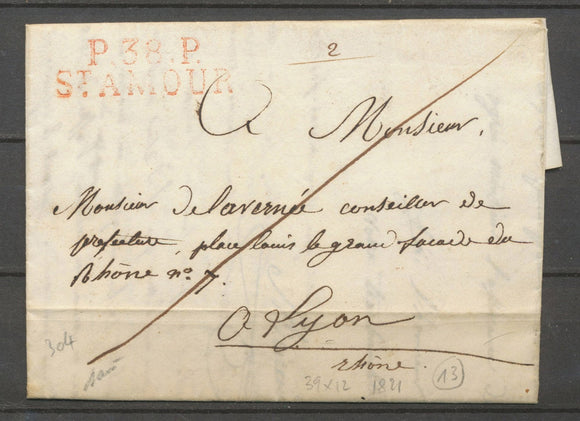 P.38.P.
ST AMOUR
2
A Monsieur,
Monsieur delavernée conseiller de
prefecture, place louis le grand facade du
Rhône no. 7.
A Lyon
rhône.
304
39x12 1821 13